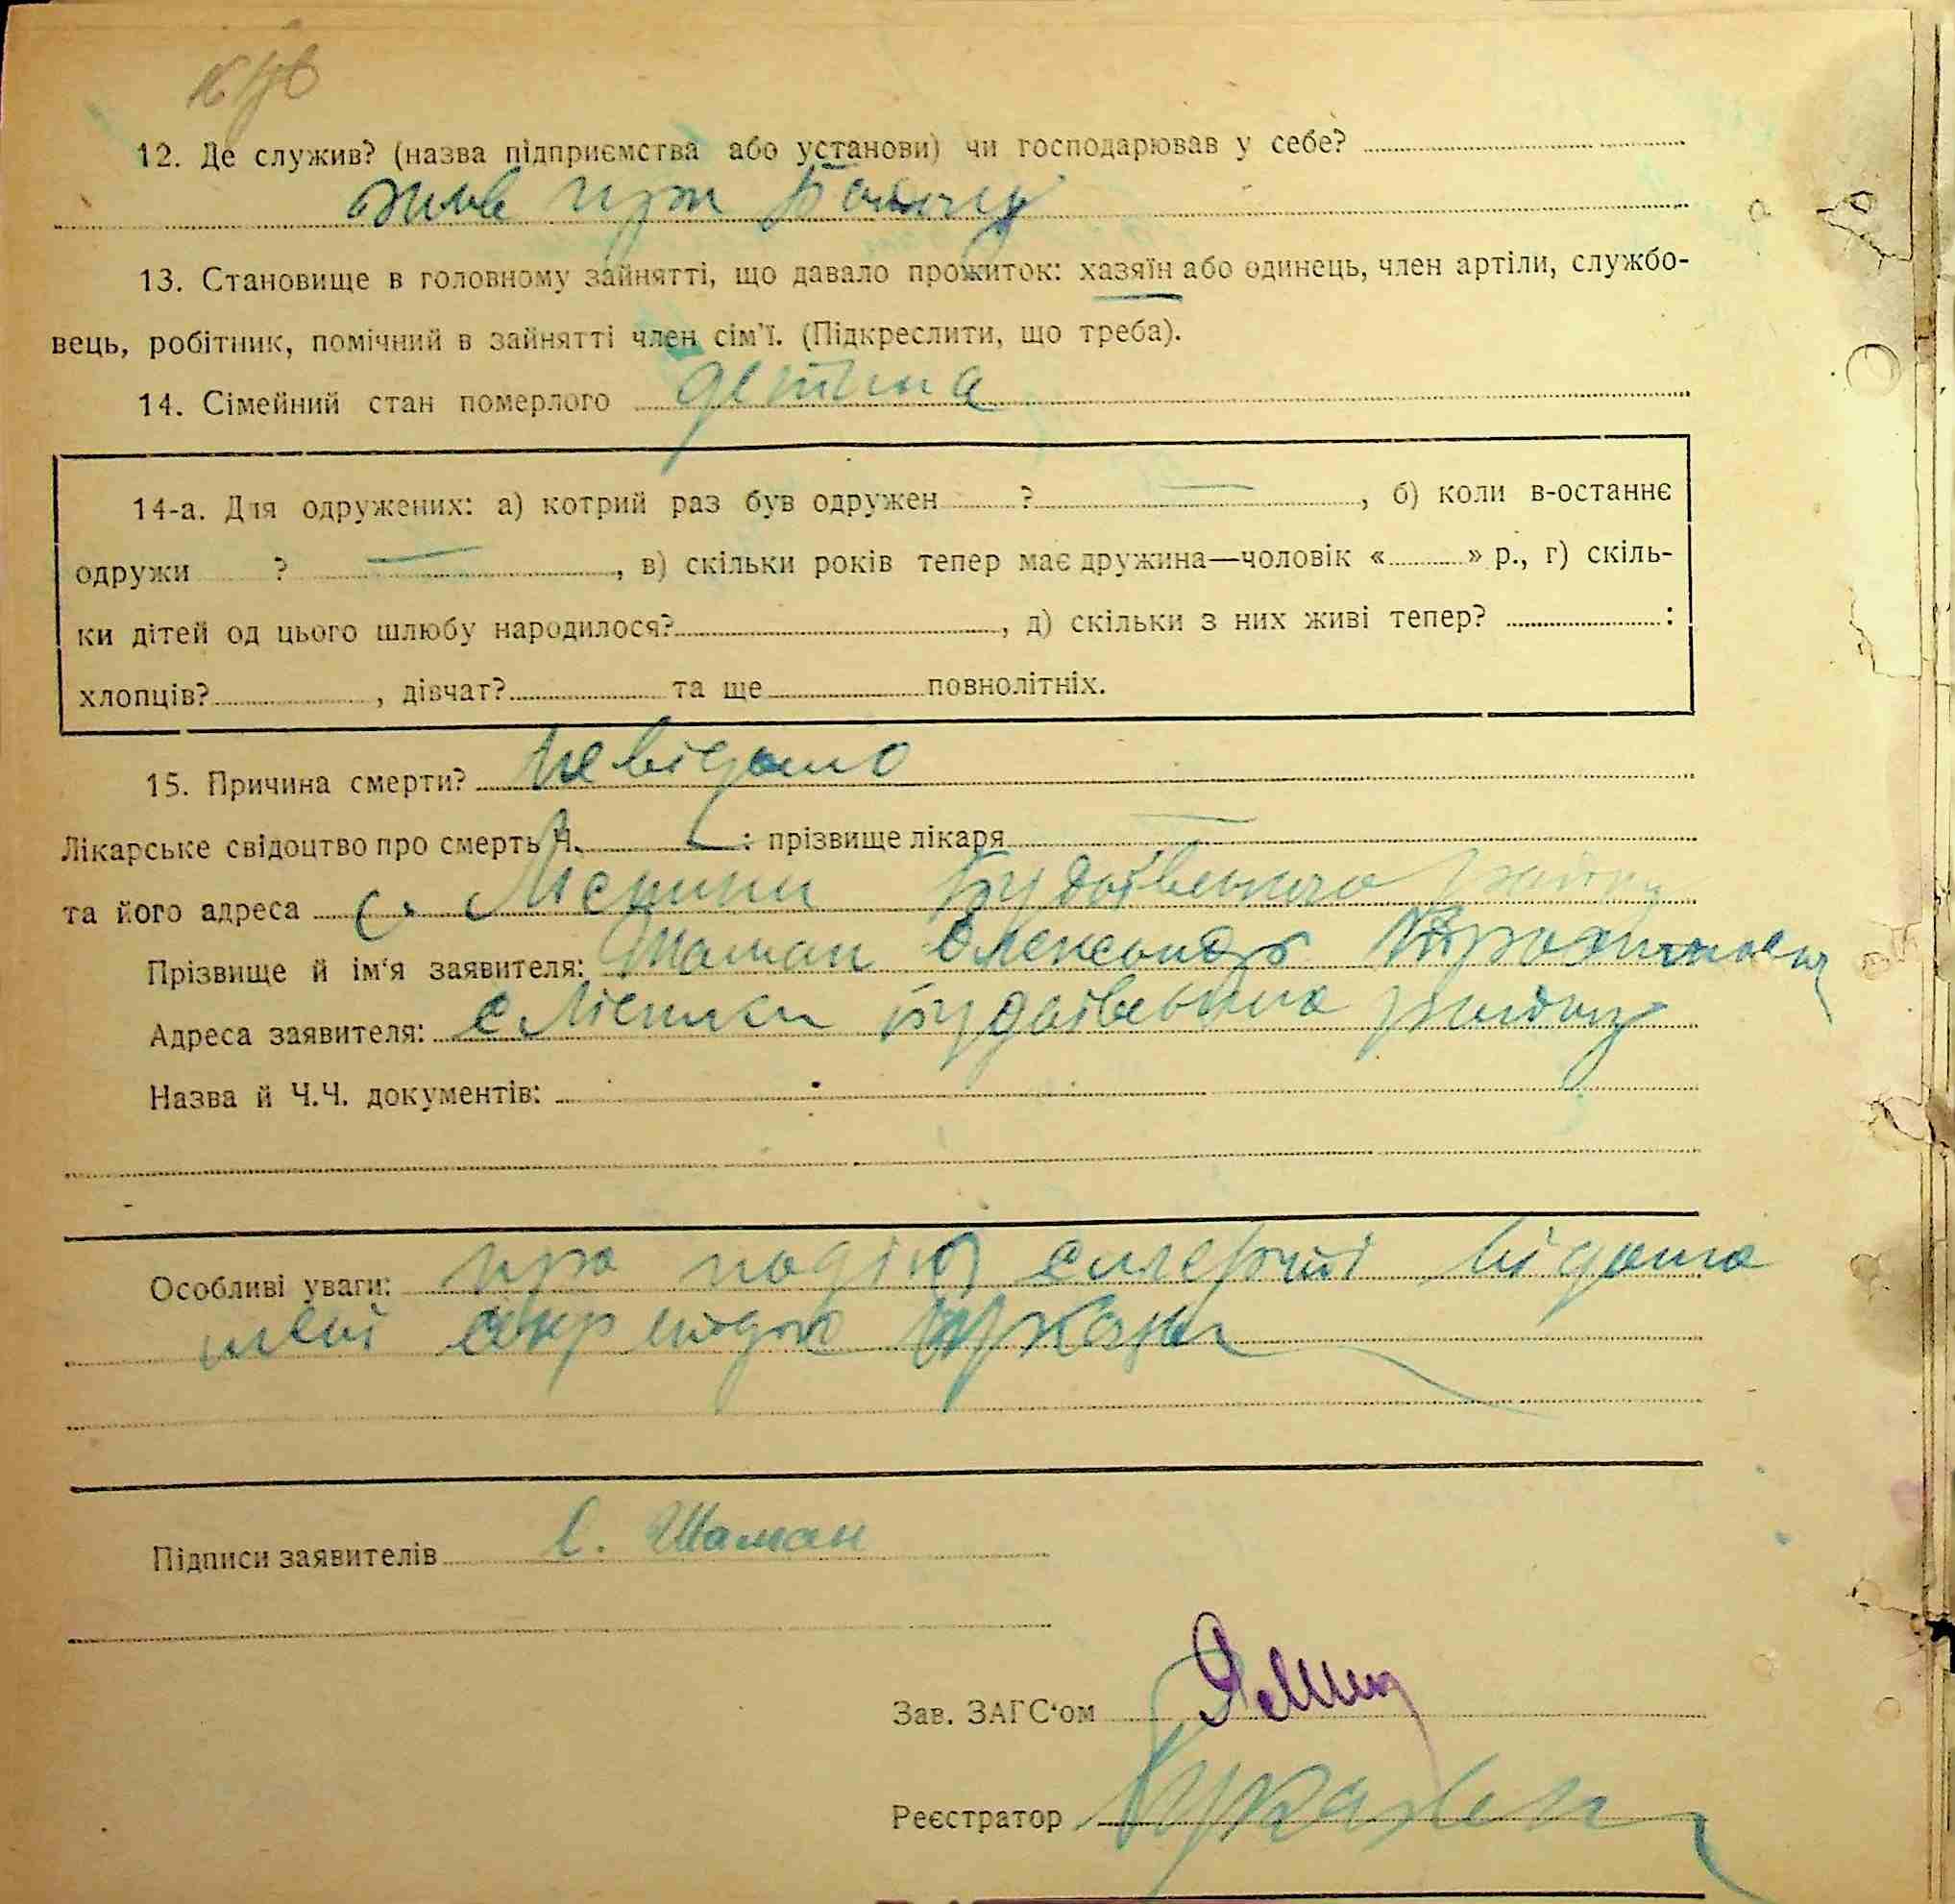 12. Де служив? (назва підприємства або установи) чи господарював у себе?
жив при батьку
13. Становище в головному зайнятті, що давало прожиток: хазяїн або одинець, член артіли, службо-
вець, робітник, помічний в зайнятті член сім'ї. (Підкреслити, що треба).
14. Сімейний стан померлого дитина
14-а. Для одружених: а) котрий раз був одружен ? —, б) коли в-останнє
одружи ? —, в) скільки років тепер має дружина—чоловік « » р., г) скіль-
ки дітей од цього шлюбу народилося? , д) скільки з них живі тепер? :
хлопців? , дівчат? та ще повнолітніх.
15. Причина смерти? невідомо
Лікарське свідоцтво про смерть Ч. : прізвище лікаря —
та його адреса с. району
Прізвище й ім'я заявителя: Шаман Олександр
Адреса заявителя: с району
Назва й Ч.Ч. документів:
Особливі уваги: про подію смерті відомо
мені
Підписи заявителів Шаман
Зав. ЗАГС'ом
Реєстратор